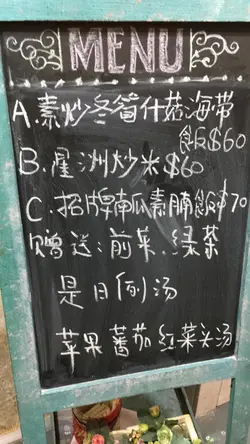 MENU
A.素炒冬筍什菇海带
飯$60
B.星洲炒米$60
C.招牌南瓜素腩飯$70
赠送:前菜.绿茶
是日例汤
苹果蕃茄红菜头汤